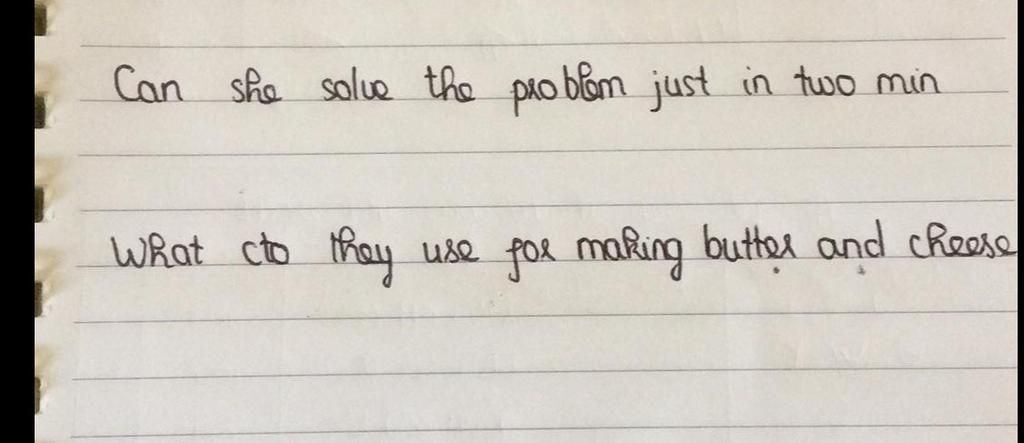 Can she solve the problem just in two min
What do they use for making butter and cheese